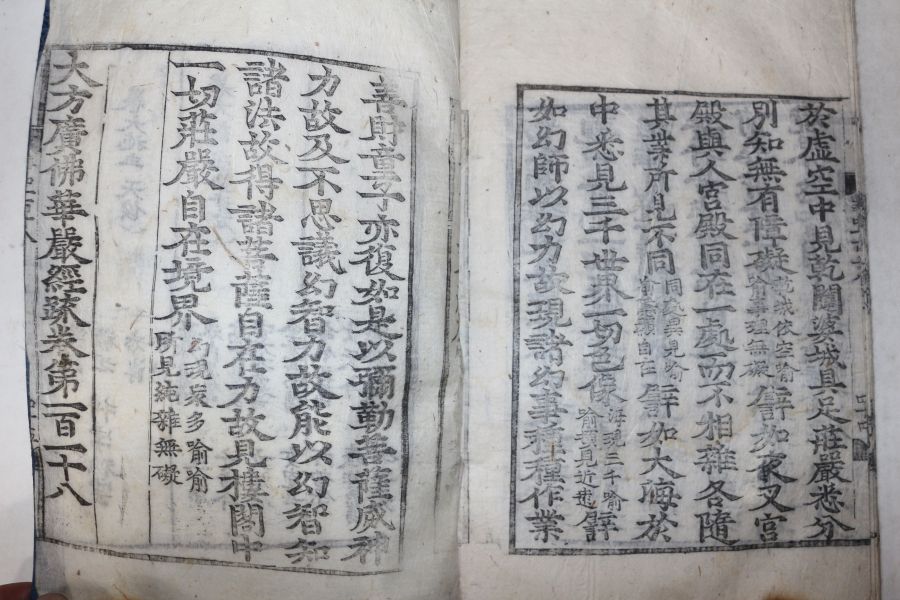 於虛空中見乾闥婆城具足莊嚴悉分
別知無有障礙乾城依空喻喻事理無礙譬如夜叉宮
殿與人宮殿同在一處而不相雜各隨
其業所見不同同處異見喻譬如大海於
中悉見三千世界一切色像海現三千喻喻頓見近遠譬
如幻師以幻力故現諸幻事種種作業
善財童子亦復如是以彌勒菩薩威神
力故及不思議幻智力故能以幻智知
諸法故得諸菩薩自在力故見樓閣中
一切莊嚴自在境界幻現衆多喻喻所見純雜無礙
大方廣佛華嚴經疏卷第一百一十八